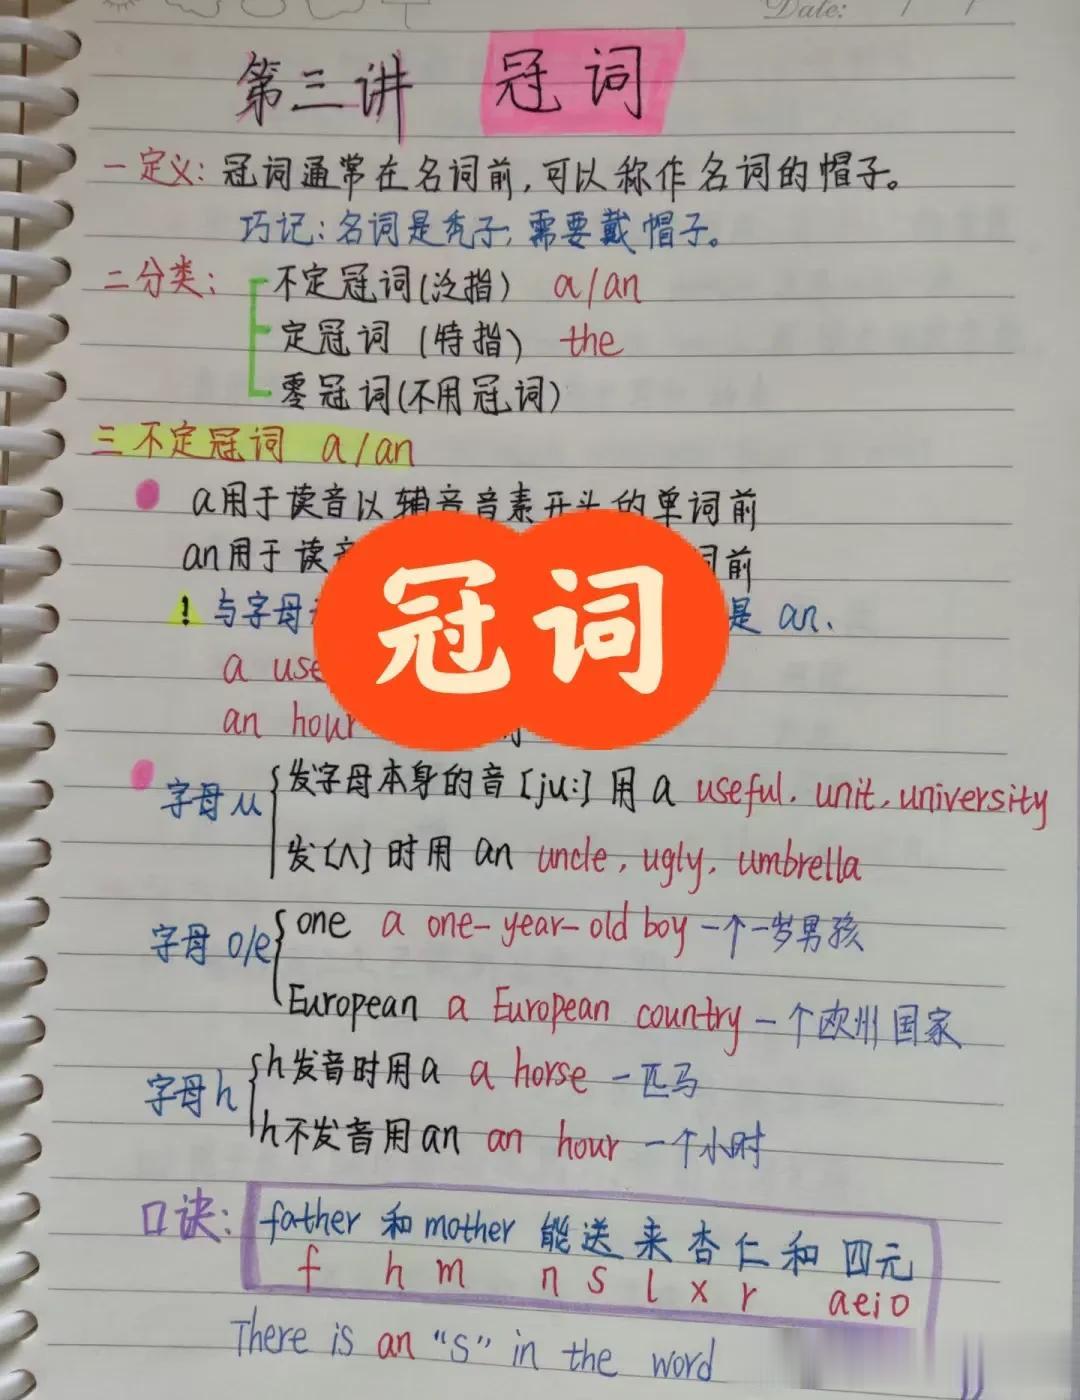 Date: / /
第三讲 冠词
一定义: 冠词通常在名词前,可以称作名词的帽子。
巧记: 名词是秃子, 需要戴帽子。
二分类: 不定冠词(泛指) a/an
定冠词 (特指) the
零冠词(不用冠词)
三不定冠词 a/an
a用于读音以辅音音素开头的单词前
an用于读音 词前
冠词
! 与字母 是 an.
a use
an hour
字母u 发字母本身的音[ju:] 用 a useful. unit. university
发[ʌ] 时用 an uncle, ugly, umbrella
字母 o/e one a one-year-old boy 一个一岁男孩
European a European country 一个欧州国家
字母h h发音时用a a horse 一匹马
h不发音用an an hour 一个小时
口诀: father 和 mother 能送来杏仁和四元
f h m n s l x r aeio
There is an “S” in the word